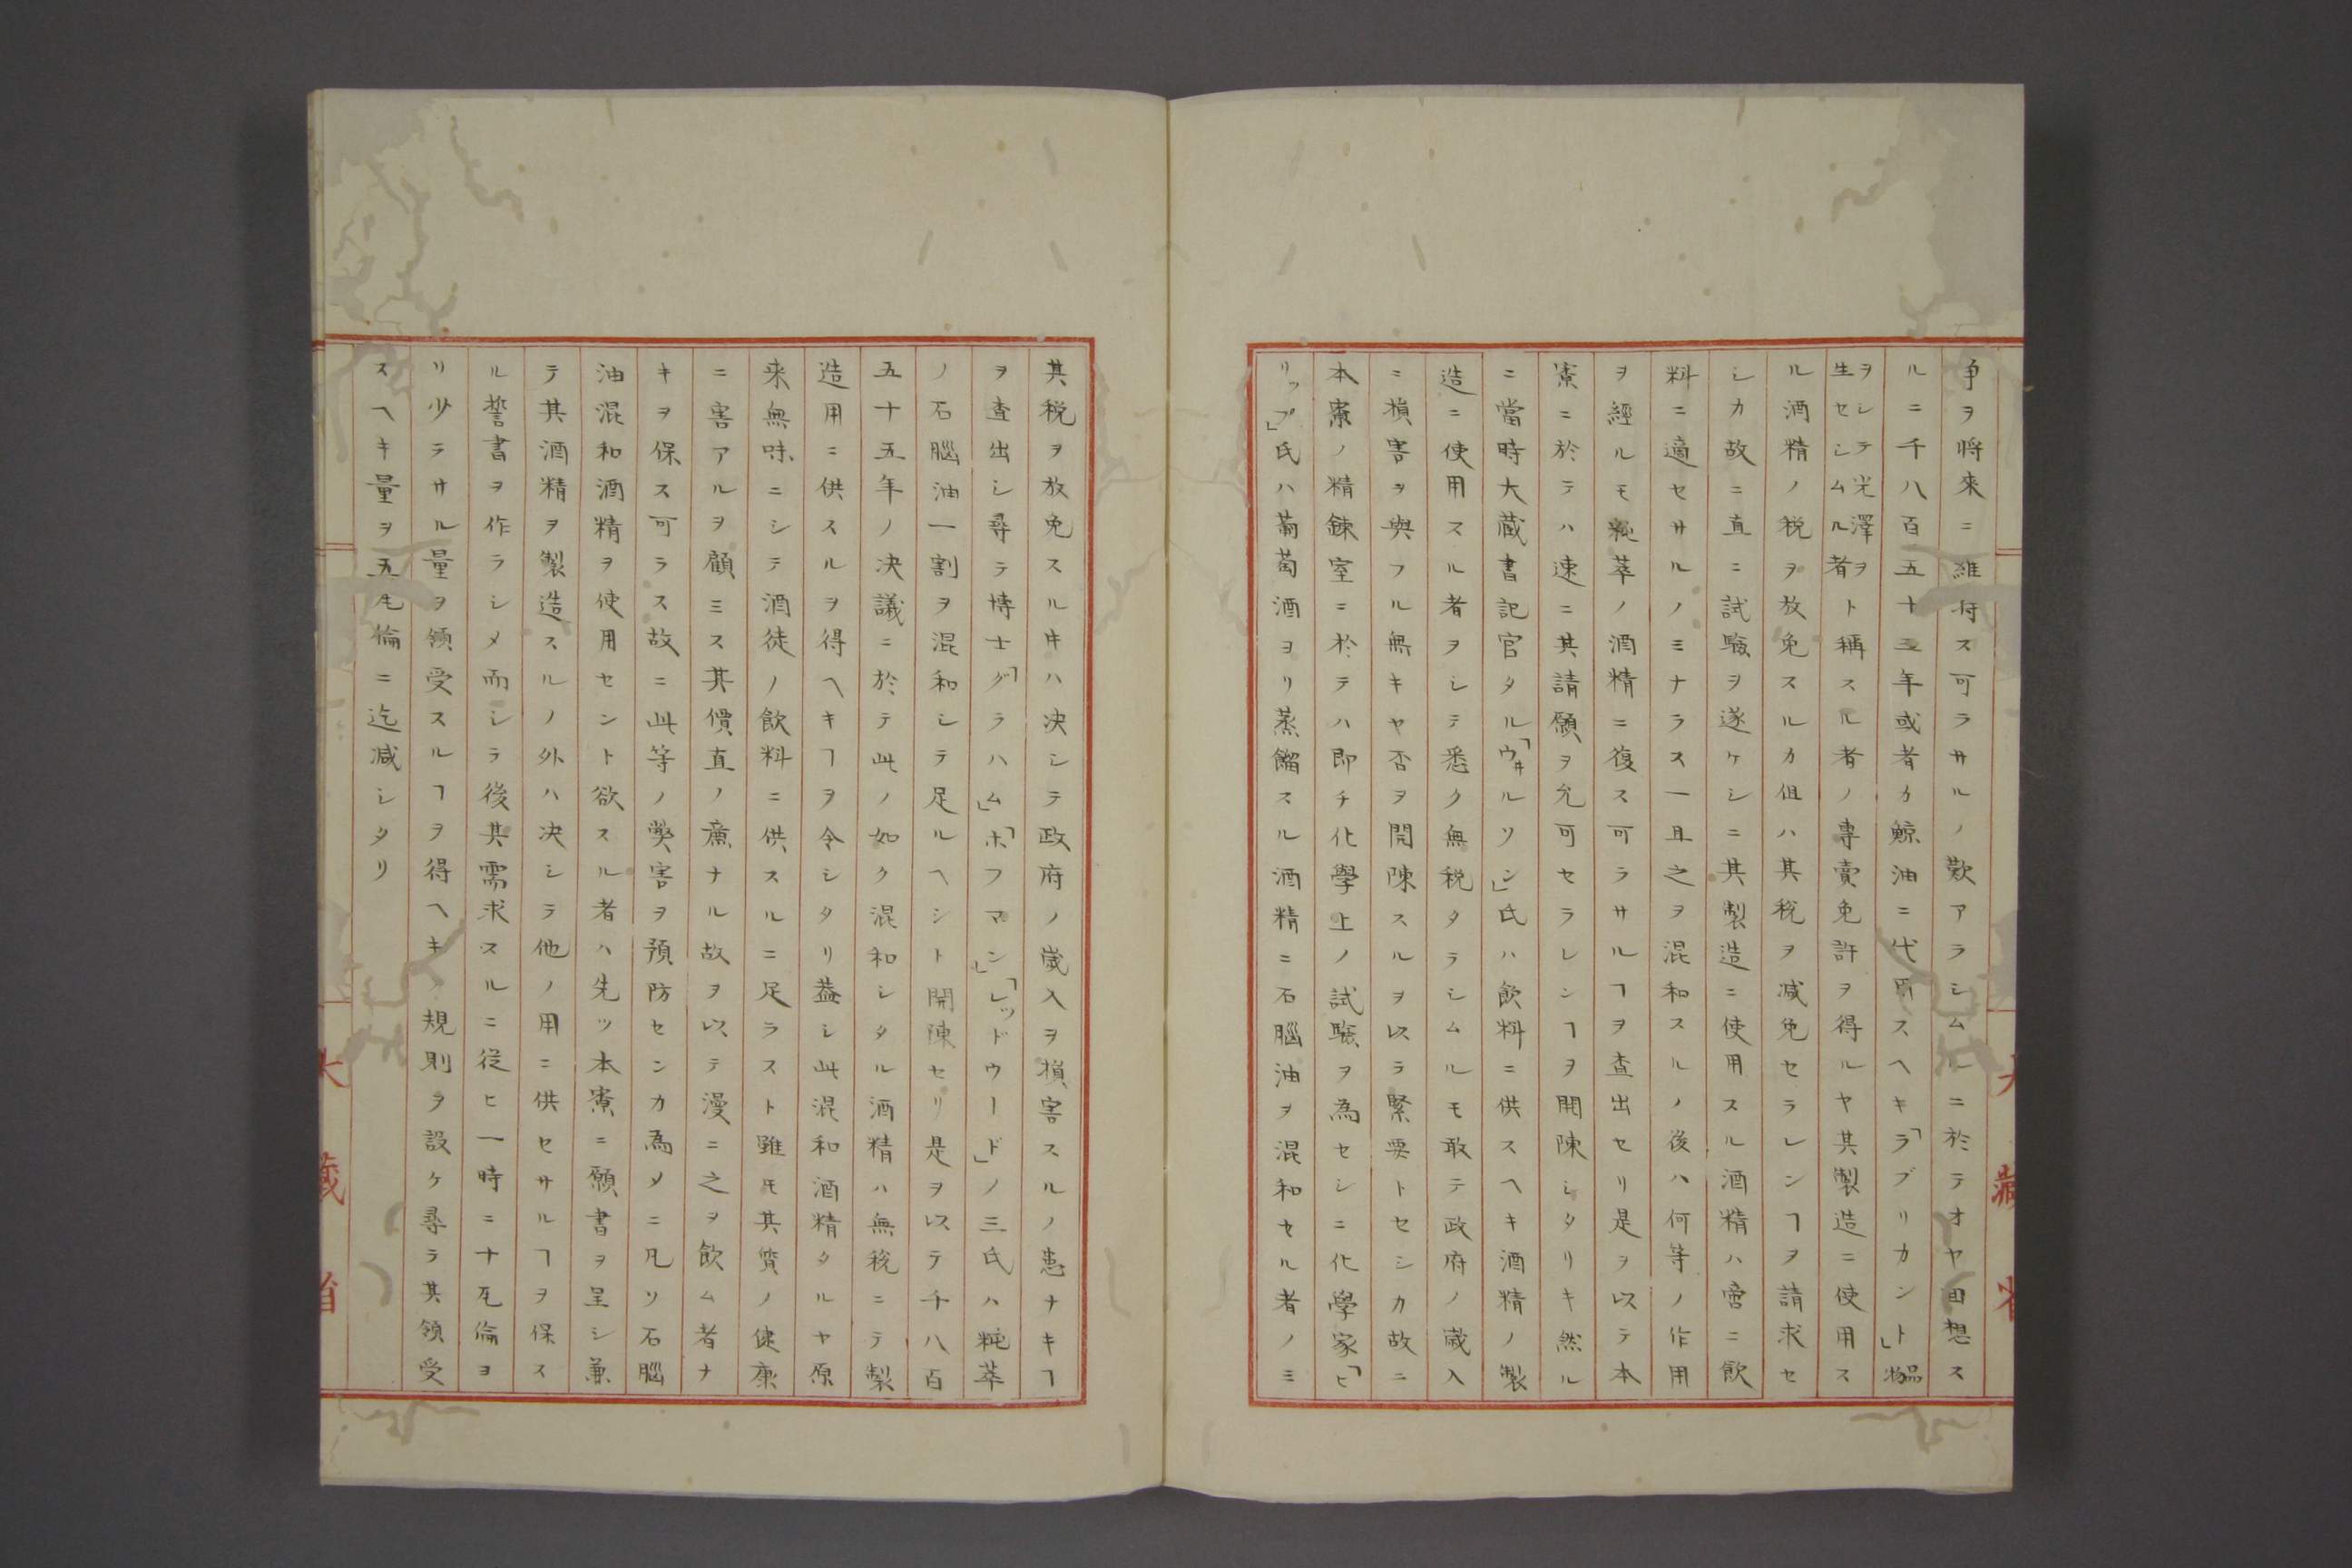 争ヲ將來ニ維持ス可ラサルノ歎アラシムルニ於テオヤ由想ス
ルニ千八百五十三年或者カ鯨油ニ代用スヘキ「ラブリカント」物品
ヲシテ光澤ヲ
生セシムル者ト稱スル者ノ專賣免許ヲ得ルヤ其製造ニ使用ス
ル酒精ノ税ヲ放免スルカ但ハ其税ヲ減免セラレンヿヲ請求セ
シカ故ニ直ニ試驗ヲ遂ケシニ其製造ニ使用スル酒精ハ啻ニ飲
料ニ適セサルノミナラス一旦之ヲ混和スルノ後ハ何等ノ作用
ヲ經ルモ純萃ノ酒精ニ復ス可ラサルヿヲ査出セリ是ヲ以テ本
寮ニ於テハ速ニ其請願ヲ允可セラレンヿヲ開陳シタリキ然ル
ニ當時大蔵書記官タル「ウヰルソン」氏ハ飲料ニ供スヘキ酒精ノ製
造ニ使用スル者ヲシテ悉ク無税タラシムルモ敢テ政府ノ歳入
ニ損害ヲ與フル無キヤ否ヲ開陳スルヲ以テ緊要トセシカ故ニ
本寮ノ精錬室ニ於テハ即チ化學上ノ試驗ヲ為セシニ化學家「ヒ
リップ」氏ハ葡萄酒ヨリ蒸餾スル酒精ニ石腦油ヲ混和セル者ノミ
其税ヲ放免スル㐧ハ决シテ政府ノ歳入ヲ損害スルノ患ナキヿ
ヲ査出シ尋テ博士「グラハム」「ホフマン」「レッドウード」ノ三氏ハ純萃
ノ石腦油一割ヲ混和シテ足ルヘシト開陳セリ是ヲ以テ千八百
五十五年ノ决議ニ於テ此ノ如ク混和シタル酒精ハ無税ニテ製
造用ニ供スルヲ得ヘキヿヲ令シタリ蓋シ此混和酒精タルヤ原
来無味ニシテ酒徒ノ飲料ニ供スルニ足ラスト雖モ其質ノ健康
ニ害アルヲ顧ミス其價直ノ廉ナル故ヲ以テ漫ニ之ヲ飲ム者ナ
キヲ保ス可ラス故ニ此等ノ弊害ヲ預防センカ為メニ凡ソ石腦
油混和酒精ヲ使用セント欲スル者ハ先ツ本寮ニ願書ヲ呈シ兼
テ其酒精ヲ製造スルノ外ハ决シテ他ノ用ニ供セサルヿヲ保ス
ル誓書ヲ作ラシメ而シテ後其需求スルニ從ヒ一時ニ十瓦倫ヨ
リ少ラサル量ヲ領受スルヿヲ得ヘキノ規則ヲ設ケ尋テ其領受
スヘキ量ヲ五瓦倫ニ迄減シタリ
大藏省